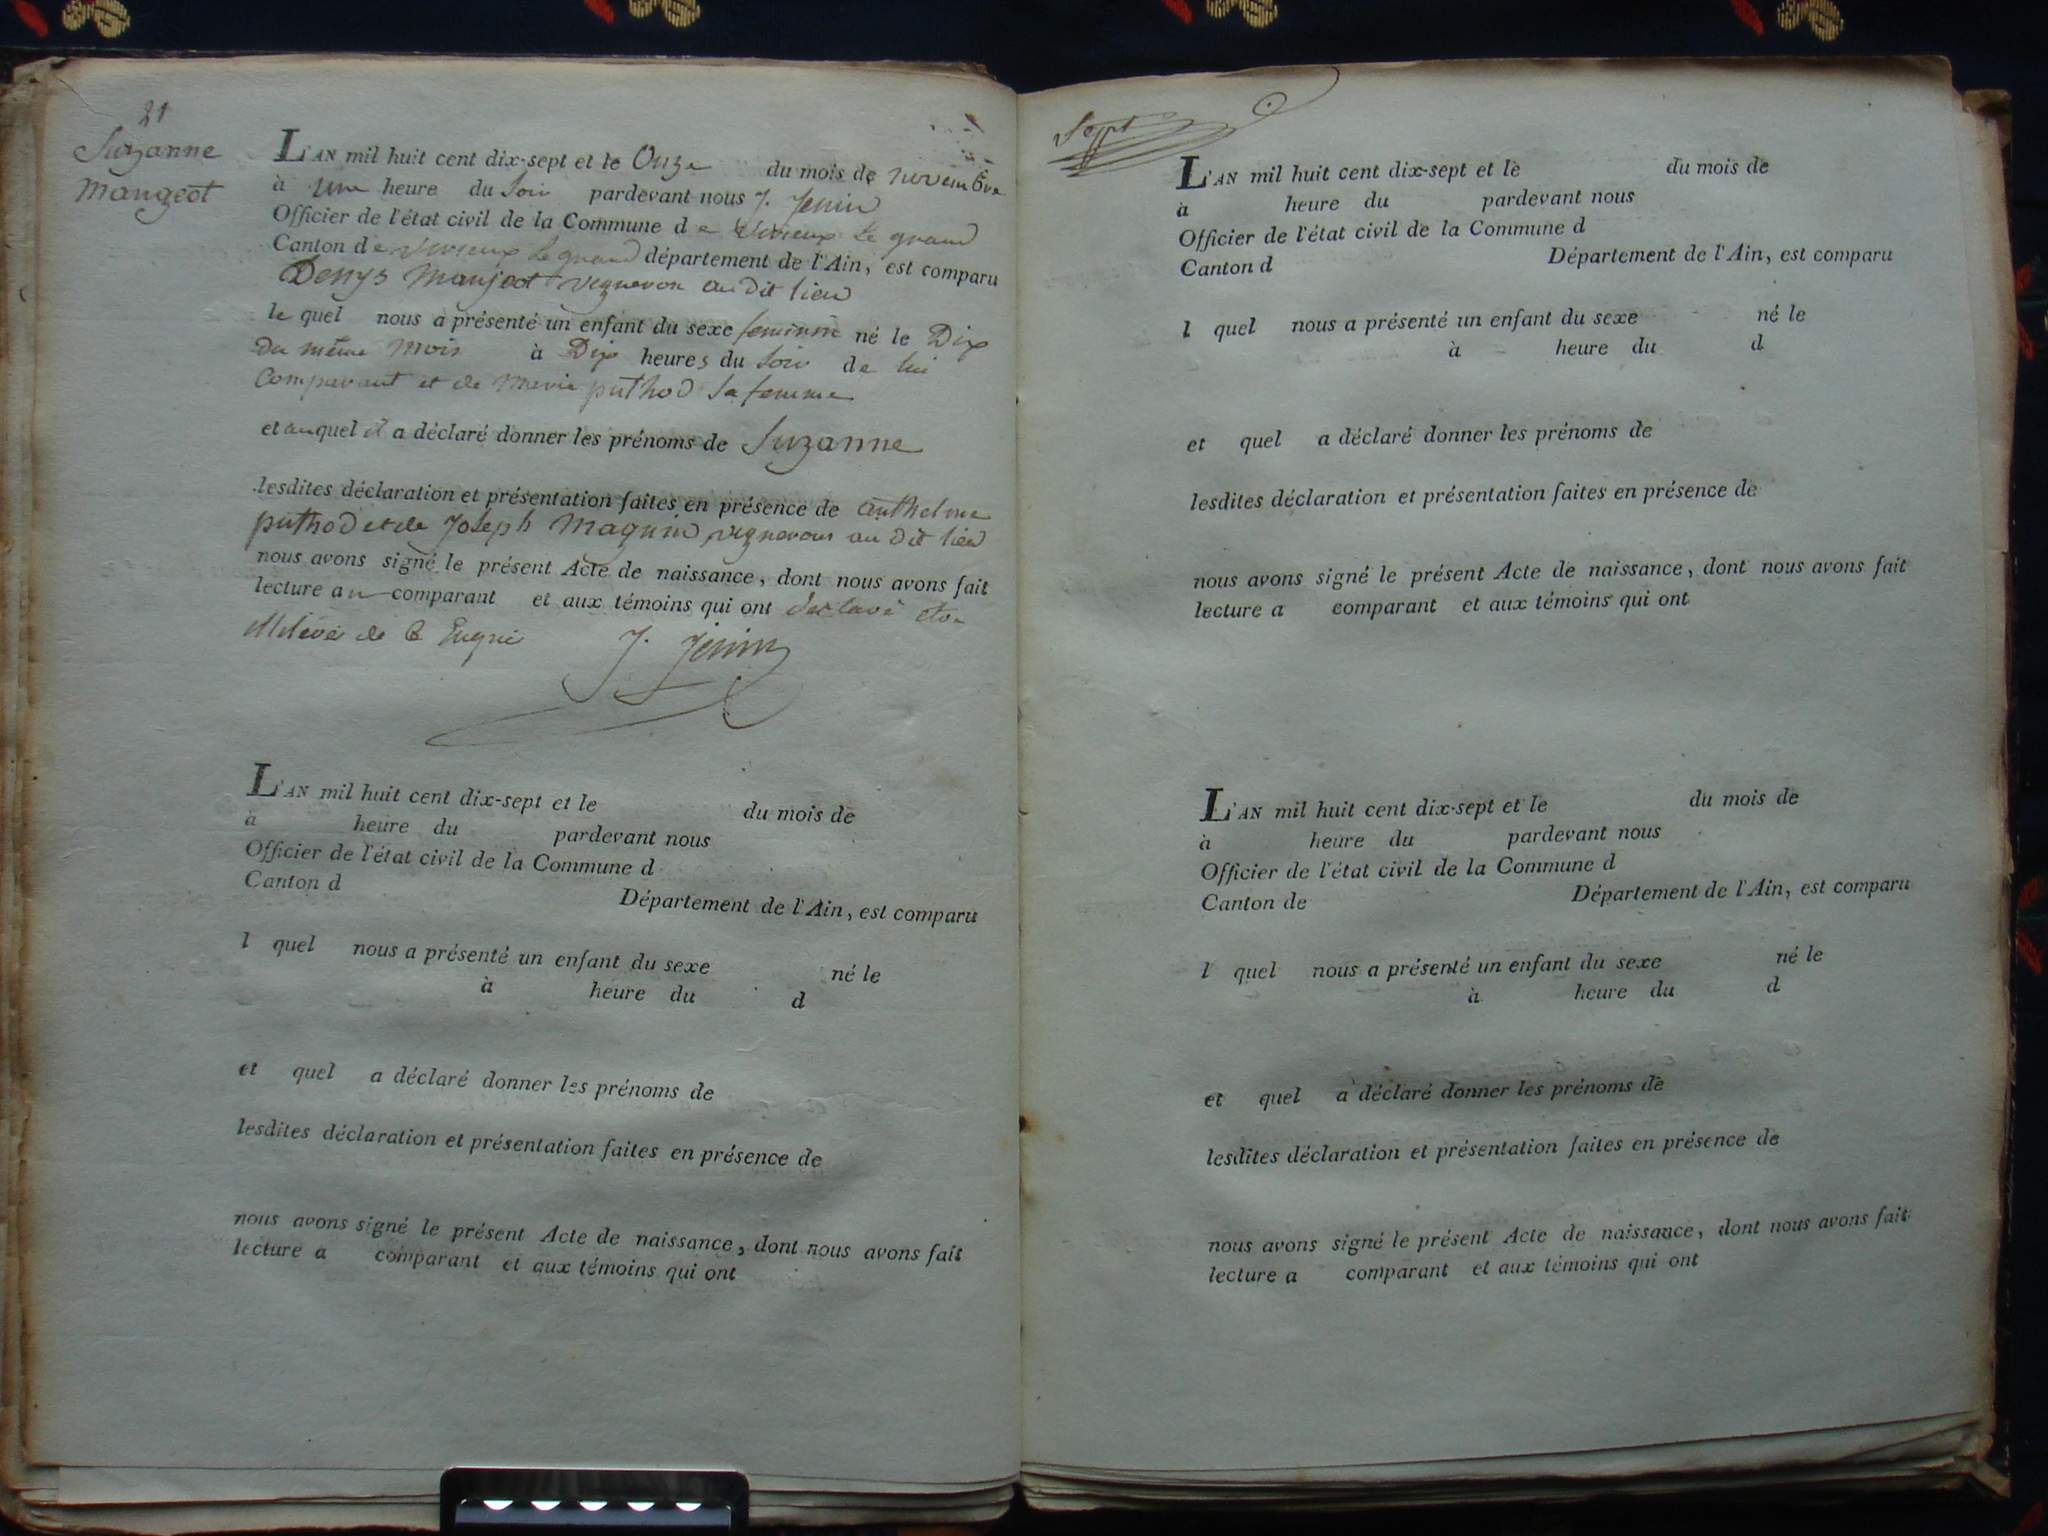 21
Suzanne
Maugeot
L'AN mil huit cent dix-sept et le Onze du mois de novembre
à une heure du soir pardevant nous J. Jenin
Officier de l'état civil de la Commune de Virieux Le grand
Canton de virieux Le grand département de l'Ain, est comparu
Denys Maujeot vigneron au dit lieu
le quel nous a présenté un enfant du sexe feminin né le Dix
du même mois à Dix heures du soir de lui
Comparant et de Marie puthod sa femme
et auquel il a déclaré donner les prénoms de Suzanne
lesdites déclaration et présentation faites en présence de anthelme
puthod et de Joseph Magnin vignerons au dit lieu
nous avons signé le présent Acte de naissance, dont nous avons fait
lecture au comparant et aux témoins qui ont declaré
de
J. Jenin
L'AN mil huit cent dix-sept et le du mois de
à heure du pardevant nous
Officier de l'état civil de la Commune d
Canton d Département de l'Ain, est comparu
l quel nous a présenté un enfant du sexe né le
à heure du d
et quel a déclaré donner les prénoms de
lesdites déclaration et présentation faites en présence de
nous avons signé le présent Acte de naissance, dont nous avons fait
lecture a comparant et aux témoins qui ont
Sept
L'AN mil huit cent dix-sept et le du mois de
à heure du pardevant nous
Officier de l'état civil de la Commune d
Canton d Département de l'Ain, est comparu
l quel nous a présenté un enfant du sexe né le
à heure du d
et quel a déclaré donner les prénoms de
lesdites déclaration et présentation faites en présence de
nous avons signé le présent Acte de naissance, dont nous avons fait
lecture a comparant et aux témoins qui ont
L'AN mil huit cent dix-sept et le du mois de
à heure du pardevant nous
Officier de l'état civil de la Commune d
Canton de Département de l'Ain, est comparu
l quel nous a présenté un enfant du sexe né le
à heure du d
et quel a déclaré donner les prénoms de
lesdites déclaration et présentation faites en présence de
nous avons signé le présent Acte de naissance, dont nous avons fait
lecture a comparant et aux témoins qui ont